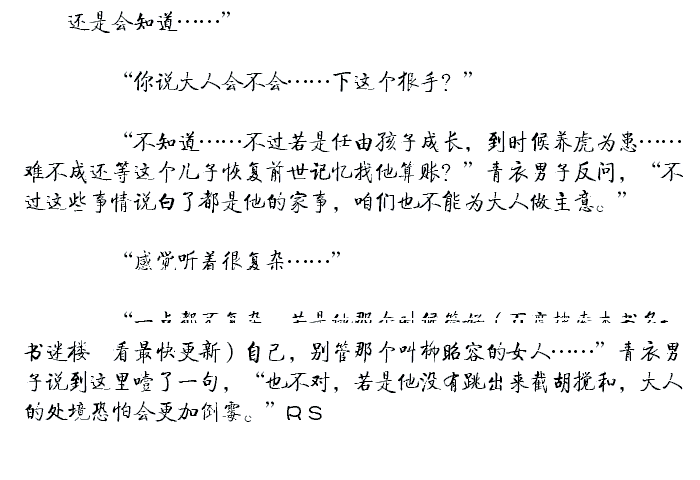 还是会知道……”
“你说大人会不会……下这个狠手？”
“不知道……不过若是任由孩子成长，到时候养虎为患……
难不成还等这个儿子恢复前世记忆找他算账？”青衣男子反问，“不
过这些事情说白了都是他的家事，咱们也不能为大人做主意。”
“感觉听着很复杂……”
“一点都不复杂，若是他那个时候管好（百度搜索本书名+
书迷楼 看最快更新）自己，别管那个叫柳昭容的女人……”青衣男
子说到这里噎了一句，“也不对，若是他没有跳出来截胡搅和，大人
的处境恐怕会更加倒霉。”RS